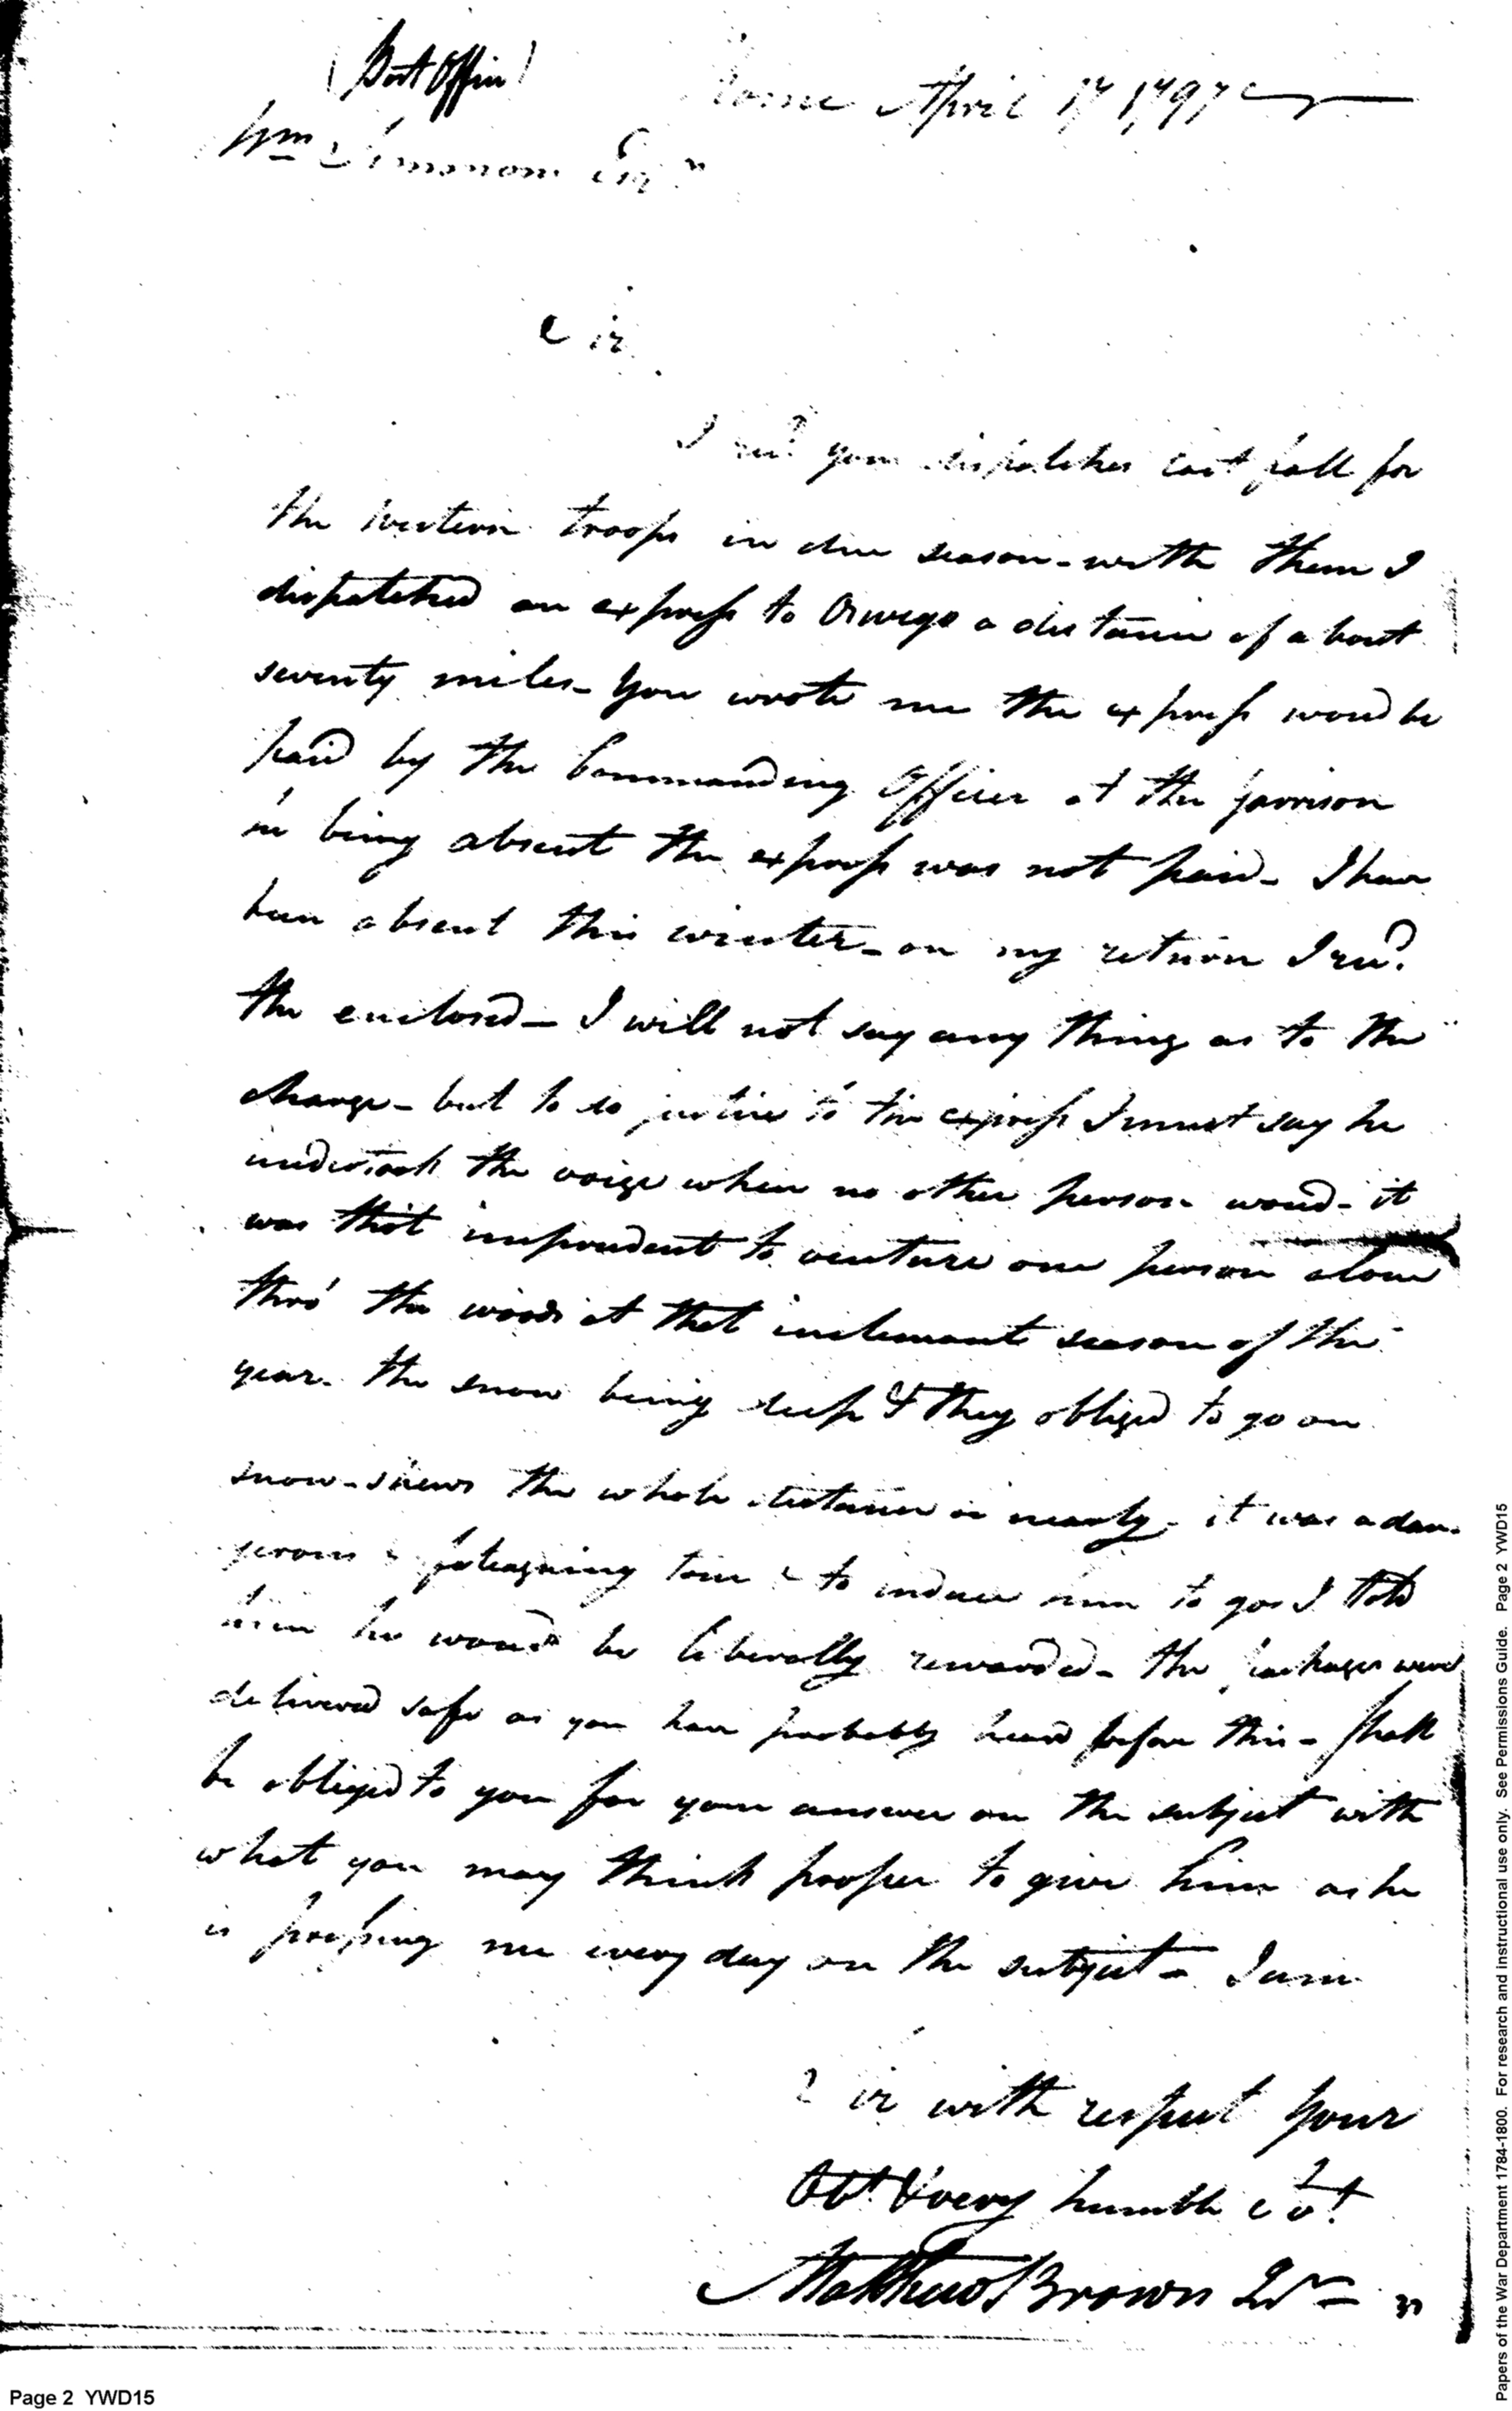 (Post Office)
Rome April 17 1797
Wm Simmons Esqr
Sir
I recd your dispatches last fall for
the western troops in due season - with them I
dispatched an express to Oswego a distance of about
seventy miles - You wrote me the express woud be
paid by the Commanding Officer at the garrison
being absent the express was not paid - I have
been absent this winter - on my return I recd
the enclosed - I will not say any thing as to the
charge - but to do justice to the express I must say he
undertook the voige when no other person woud - it
was thot imprudent to venture one person alone
thro' the woods at that inclemant season of the
year. the snow being deep & they obliged to go on
snow-shews the whole distance or nearly - it was a dan-
gerous & fateaguing tour & to induce him to go I told
him he woud be liberally rewarded - the packages were
delivered safe as you have probably heard before this - Shall
be obliged to you for your answer on the subject with
what you may think proper to give him as he
is pressing me every day on the subject - I am
Sir with respect your
Obt & very humble Svt
Matthew Brown Jr
Page 2 YWD15
Papers of the War Department 1784-1800. For research and instructional use only. See Permissions Guide. Page 2 YWD15